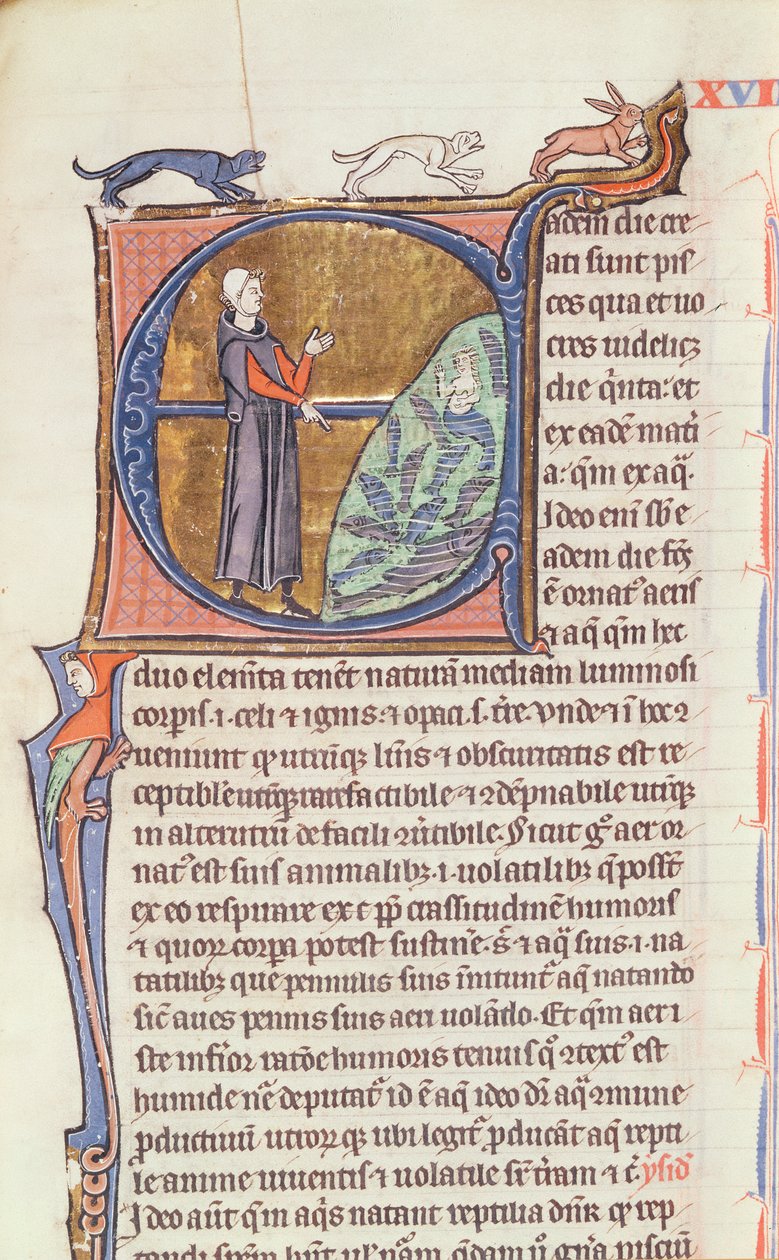 XVII
Eadem die cre
ati sunt pis
ces qua et uo
cres uidelicȝ
die q̓nta: et
ex eadē mati
a: qm̄ ex aq̄.
Ideo eni sb̄ e
adem die
ē ornatꝰ aeris
⁊ aq̄ qm̄ hec
duo elem̄ta tenēt naturā mediam luminosi
corpis .i. celi ⁊ ignis: ⁊ opaci .s. t̄re. vnde ⁊ ī hoc ꝯ
ueniunt qꝫ utrūqꝫ ⁊ obscuritatis est re
ceptibile utrūqꝫ rarefactibile ⁊ ꝯdēpnabile utrūqꝫ
in alterutrū de facili ꝯūtibile. Sicut gͦ aer or
natꝰ est suis animalibꝫ .i. uolatilibꝫ q̄ possūt
ex eo respirare ex t pp̄ crassitudinē humoris
⁊ quoꝝ corpa potest sustinē. ⁊ aq̄ suis .i. na
tatilibꝫ que pennulis suis īnitunt̄ aq̄ natando
sic̄ aues pennis suis aeri uolādo. Et qm̄ aer i
ste inf̄ior ratōe humoris tenuis ꝯtextꝰ est
humide deputat̄ id ē aq̄ ideo dr̄ aq̄ ꝯmune
ꝓductiuū utroꝝqꝫ ubi legit̄ ꝓducāt aq̄ repti
le anime uiuentis ⁊ uolatile sr̄ t̄ram ⁊ c̄. ysid̓
Ideo aūt qm̄ aq̄s natant reptilia dn̄r qꝫ rep
tandi hn̄t q̄dam piscium